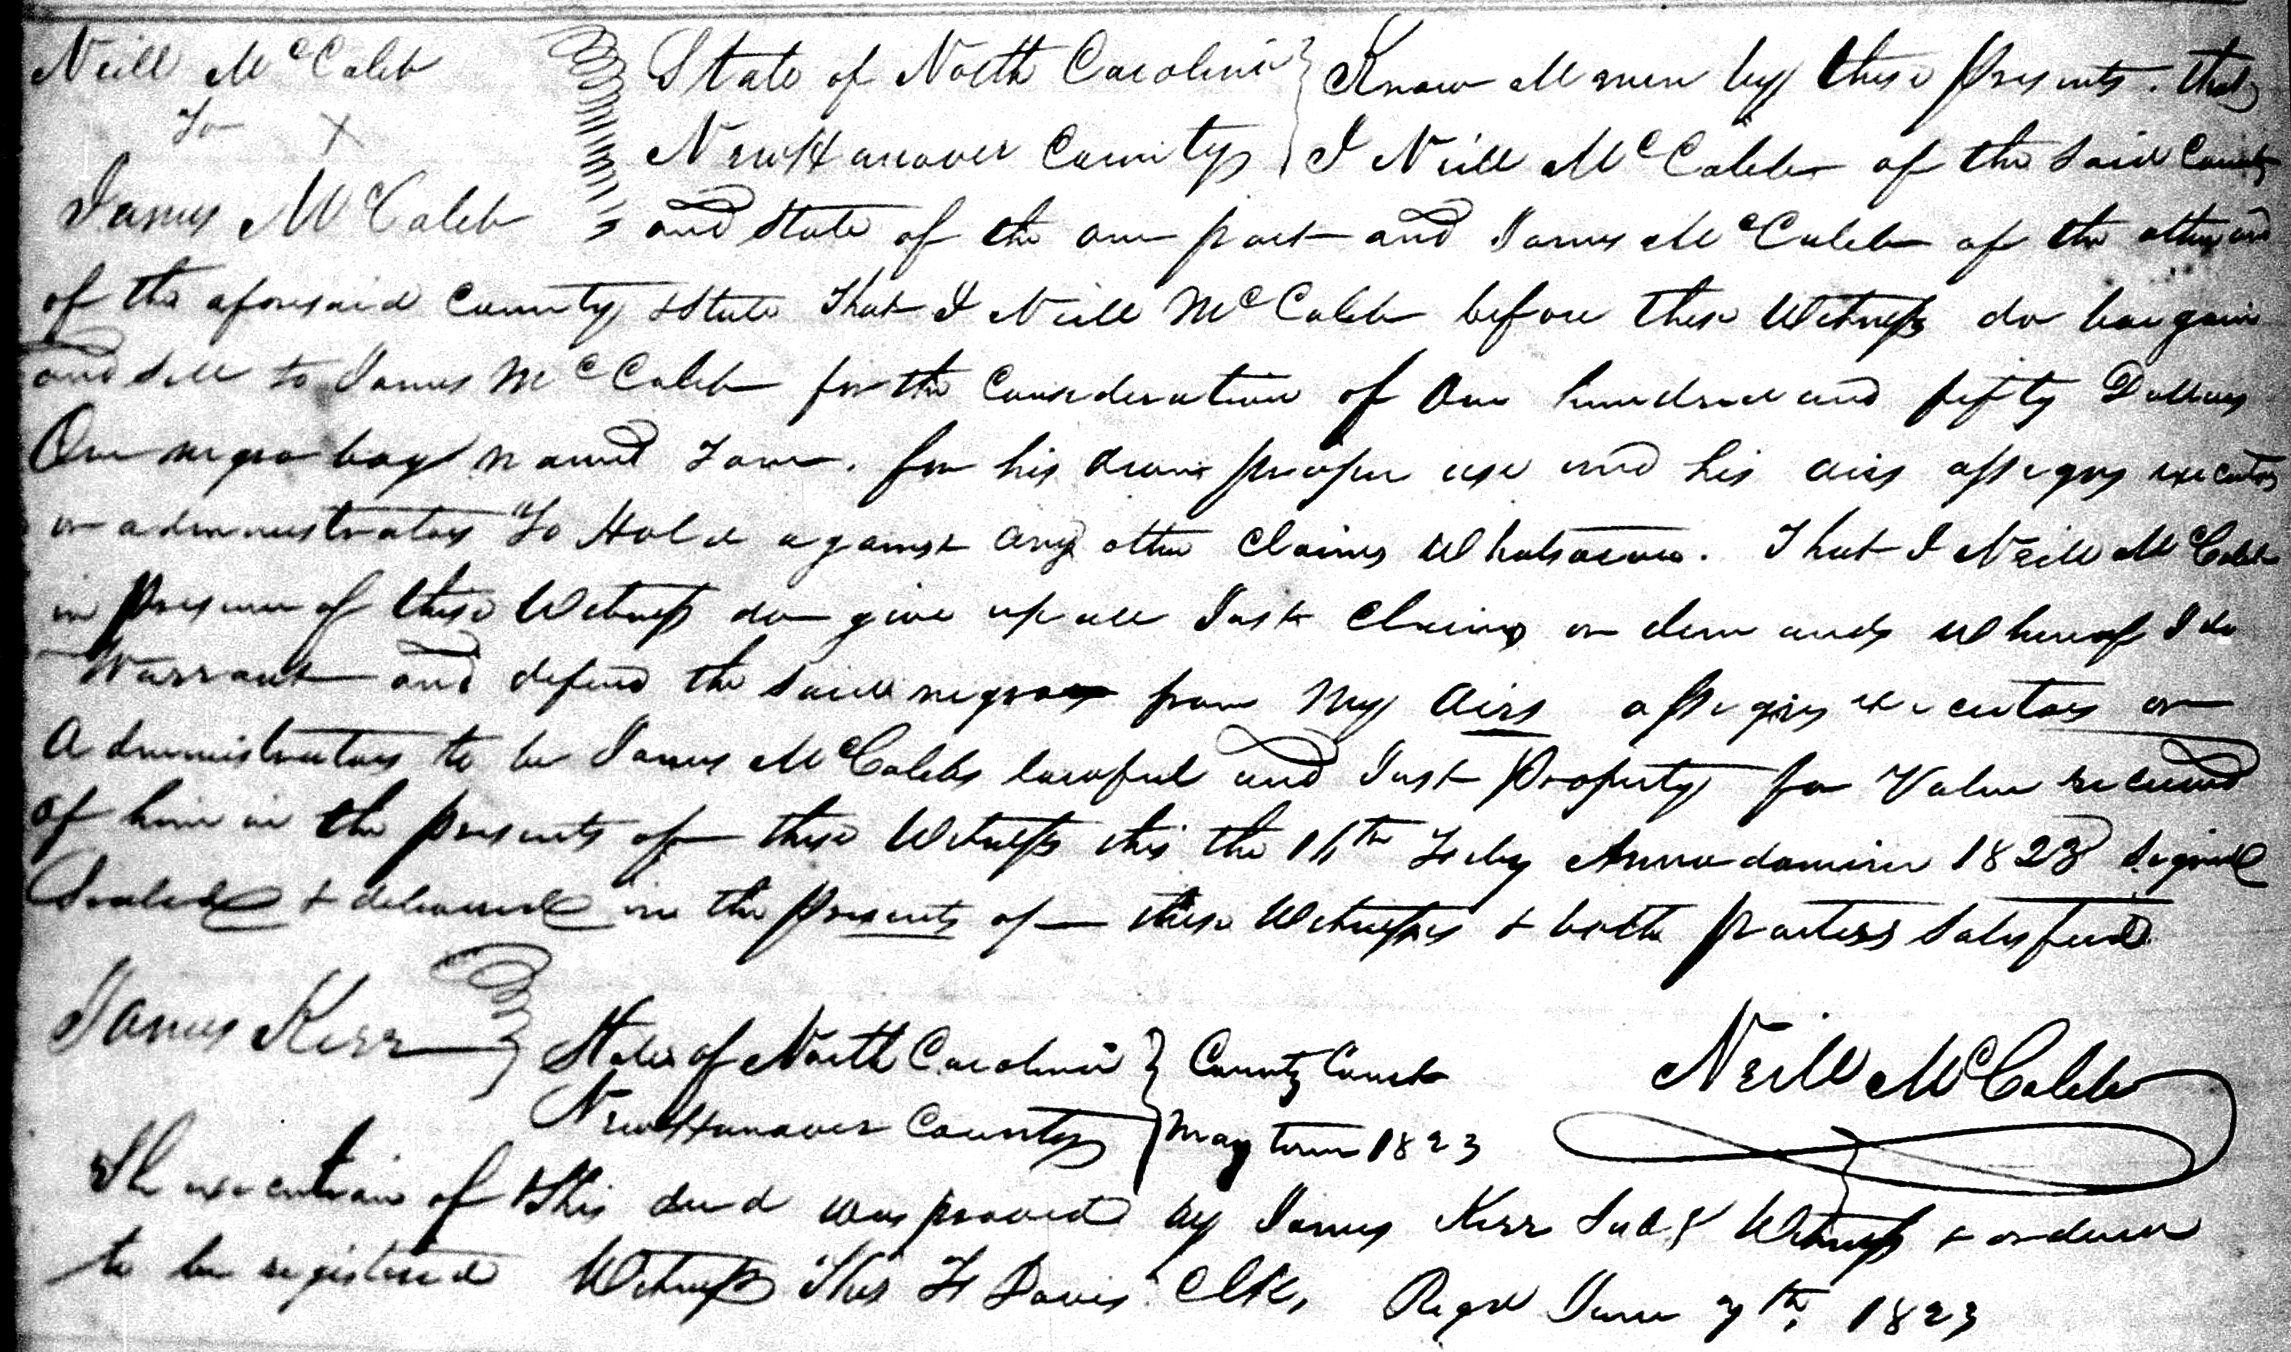 Neill McCaleb
To X
James McCaleb
State of North Carolina } Know all men by these Presents. that
New Hanover County } I Neill McCaleb of the said County
and State of the one part and James McCaleb of the other and
of the aforesaid County & State That I Neill McCaleb before these Witness do bargain
and Sell to James McCaleb for the Consideration of One hundred and fifty Dollars
One negro boy named Tom. for his own proper use and his airs assigns executors
or administrators To Hold against any other claims Whatsoever. That I Neill McCaleb
in Presence of these Witness do give up all Just Claims or demands whereof I do
Warrant and defend the said negro from My Airs assigns executors or
Administrators to be James McCalebs lawful and Just Property for Value received
of him in the presents of these Witness this the 16th Feby Anno domini 1823 Signed
Sealed & delivered in the Presents of these Witnesses & both parties Satisfied
James Kerr } State of North Carolina } County Court Neill McCaleb
New Hanover County } May term 1823
The execution of this deed was proved by James Kerr Subs Witness & ordered
to be registered Witness Thos F Davis Clk, Regd June 7th, 1823